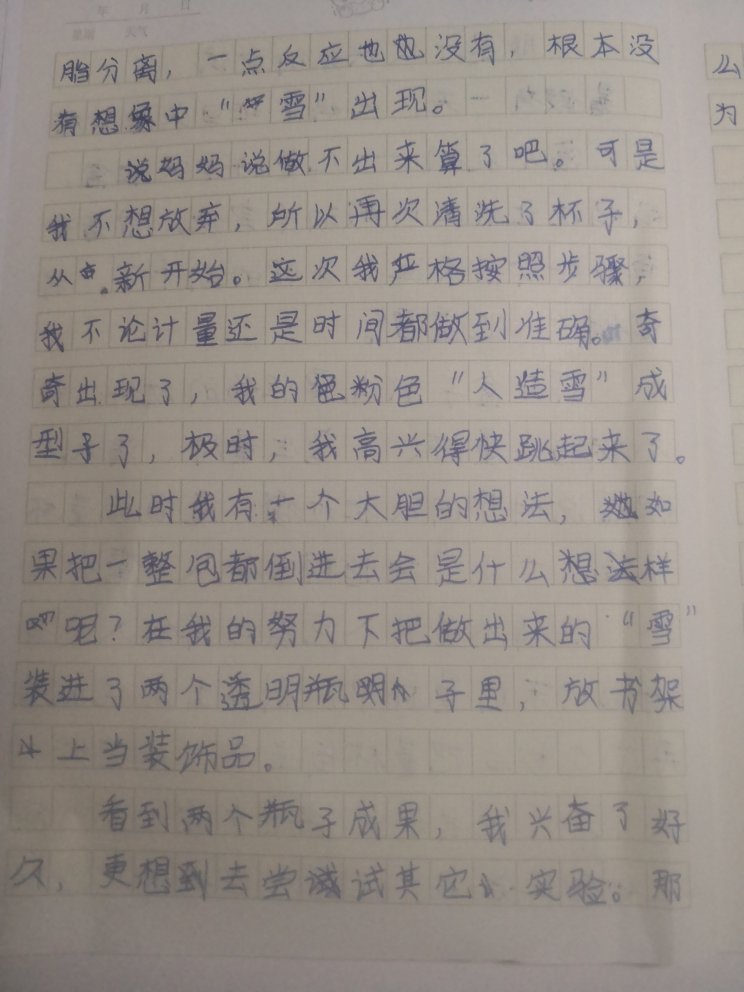 年 月 日
星期 天气
脂分离，一点反应也没有，根本没
有想象中“雪”出现。
说妈妈说做不出来算了吧。可是
我不想放弃，所以再次清洗了杯子，
从新开始。这次我严格按照步骤，
我不论计量还是时间都做到准确。奇
奇出现了，我的色粉色“人造雪”成
型子了，极时，我高兴得快跳起来了。
此时我有一个大胆的想法，如
果把一整包都倒进去会是什么想法样
呢？在我的努力下把做出来的“雪”
装进了两个透明瓶子里，放书架
上当装饰品。
看到两个瓶子成果，我兴奋了好
久，更想到去尝试其它实验。那
么
为